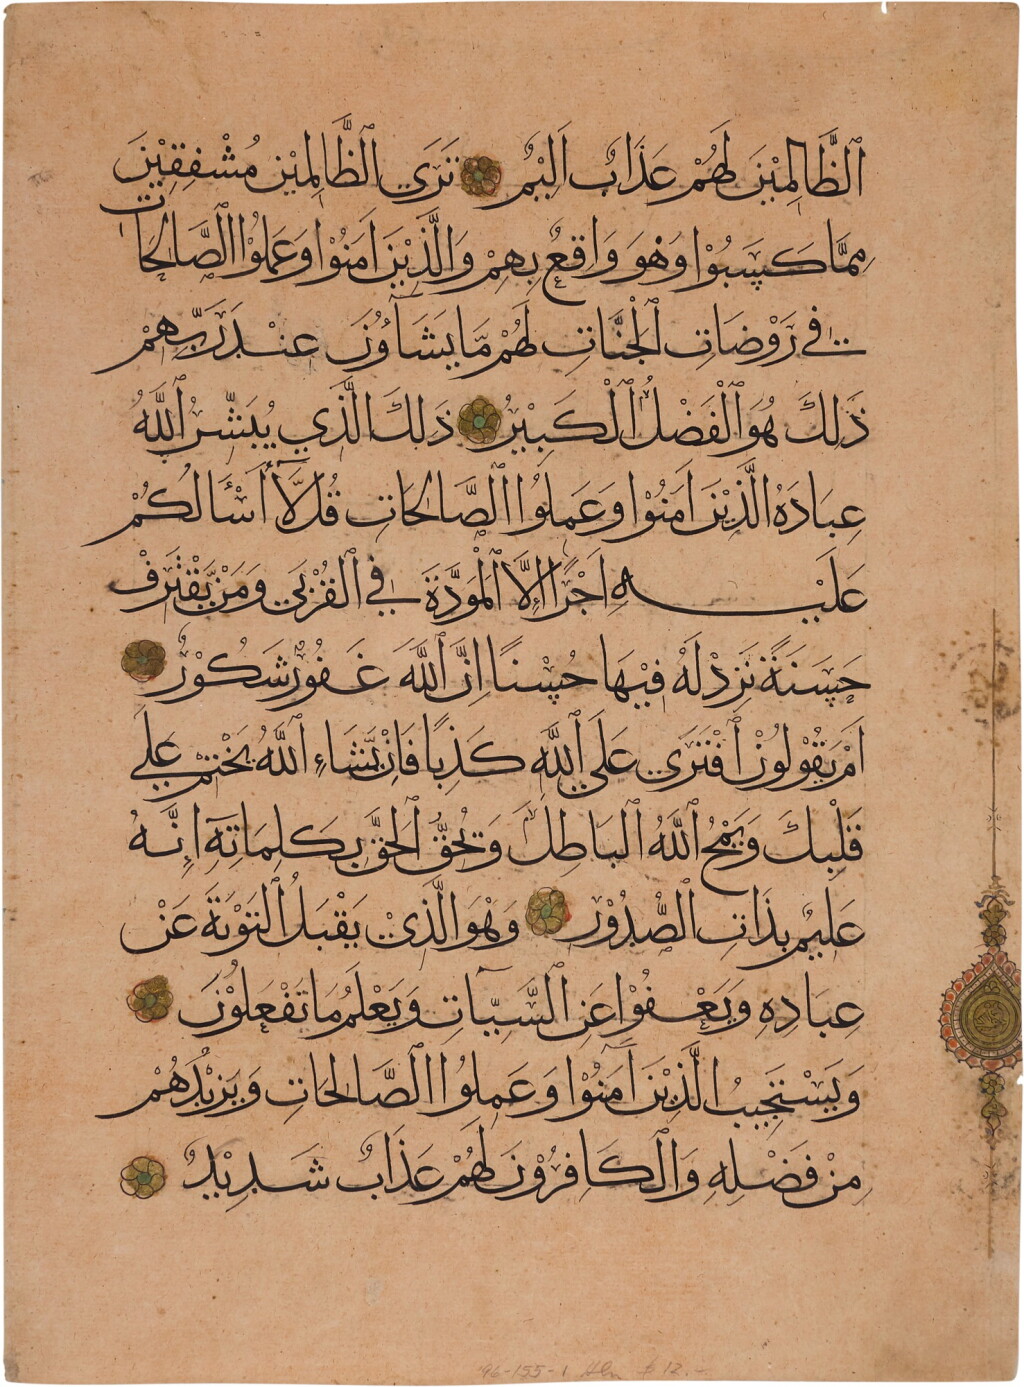 ٱلظَّالِمِيْنَ لَهُمْ عَذَابٌ اَلِيْمٌ تَرَى ٱلظَّالِمِيْنَ مُشْفِقِيْنَ
مِمَّا كَسَبُوْا وَهُوَ وَاقِعٌ بِهِمْ وَٱلَّذِيْنَ اٰمَنُوْا وَعَمِلُوْا ٱلصَّالِحَاتِ
فِي رَوْضَاتِ ٱلْجَنَّاتِ لَهُمْ مَا يَشَآوُنَ عِنْدَ رَبِّهِمْ
ذٰلِكَ هُوَ ٱلْفَضْلُ ٱلْكَبِيْرُ ذٰلِكَ ٱلَّذِي يُبَشِّرُ ٱللّٰهُ
عِبَادَهُ ٱلَّذِيْنَ اٰمَنُوْا وَعَمِلُوا ٱلصَّالِحَاتِ قُل لَّآ أَسْأَلُكُمْ
عَلَيْهِ اَجْرًا اِلَّا ٱلْمَوَدَّةَ فِي ٱلْقُرْبٰي وَمَنْ يَّقْتَرِفْ
حَسَنَةً نَزِدْ لَهُ فِيْهَا حُسْنًا اِنَّ ٱللّٰهَ غَفُوْرٌ شَكُوْرٌ
اَمْ يَقُوْلُوْنَ ٱفْتَرَى عَلَي ٱللّٰهِ كَذِبًا فَاِنْ يَّشَاءِ ٱللّٰهُ يَخْتِمْ عَلٰي
قَلْبِكَ وَيَمْحُ ٱللّٰهُ ٱلْبَاطِلَ وَيُحِقُّ ٱلْحَقَّ بِكَلِمَاتِهٓ اِنَّهُ
عَلِيْمٌ بِذَاتِ ٱلصُّدُوْرِ وَهُوَ ٱلَّذِيْ يَقْبَلُ ٱلتَّوْبَةَ عَنْ
عِبَادِهِ وَيَعْفُوْا عَنِ ٱلسَّيِّاٰتِ وَيَعْلَمُ مَا تَفْعَلُوْنَ
وَيَسْتَجِيْبُ ٱلَّذِيْنَ اٰمَنُوْا وَعَمِلُوا ٱلصَّالِحَاتِ وَيَزِيْدُهُمْ
مِنْ فَضْلِهِ وَٱلْكَافِرُوْنَ لَهُمْ عَذَابٌ شَدِيْدٌ
96-155-1 $12.-